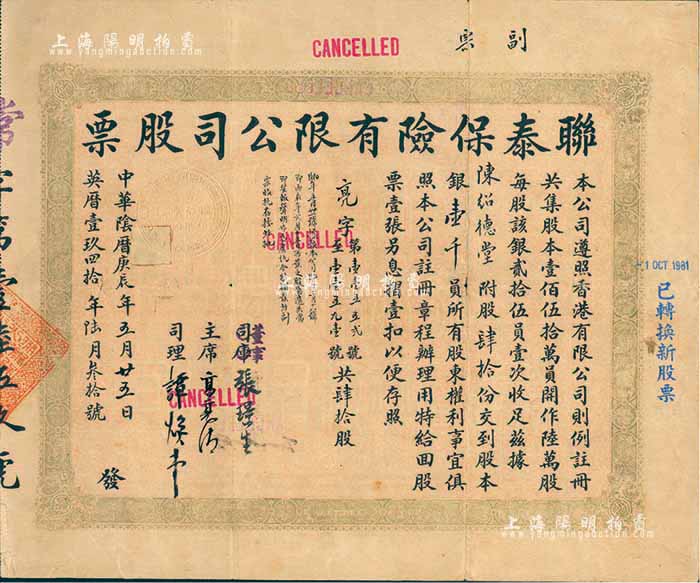 上海陽明拍賣
www.yangmingauction.com
CANCELLED
副票
聯泰保險有限公司股票
本公司遵照香港有限公司則例註冊
共集股本壹佰伍拾萬員開作陸萬股
每股該銀貳拾伍員壹次收足茲據
陳紹德堂附股肆拾份交到股本
銀壹千員所有股東權利事宜俱
照本公司註冊章程辦理用特給回股
票壹張另息摺壹扣以便存照
亮字第壹壹五五弍號
至壹壹五九壹號共肆拾股
CANCELLED
董事
司庫
主席
司理
CANCELLED
中華陰曆庚辰年五月廿五日
英曆壹玖四拾年陸月叁拾號
發
1 OCT 1981
已轉換新股票
上海陽明拍賣
www.yangmingauction.com